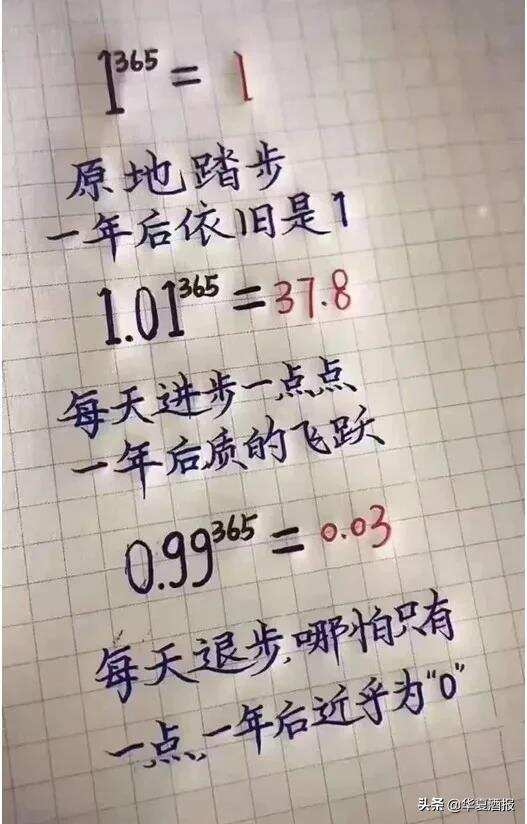 1³⁶⁵ = 1
原地踏步
一年后依旧是1
1.01³⁶⁵ = 37.8
每天进步一点点
一年后质的飞跃
0.99³⁶⁵ = 0.03
每天退步,哪怕只有
一点,一年后近乎为"0"
头条 @华夏酒报